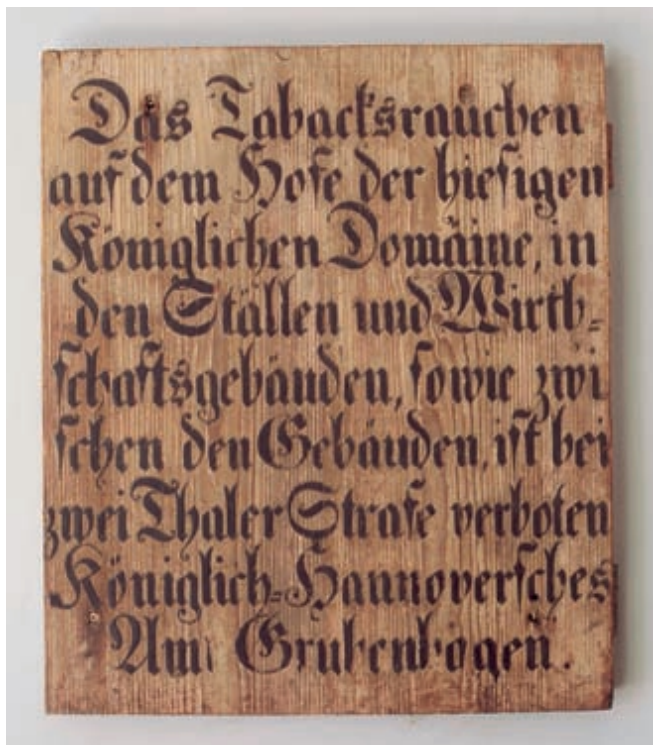 Das Tabacksrauchen
auf dem Hofe der hiesigen
Königlichen Domäine, in
den Ställen und Wirth-
schaftsgebäuden, sowie zwi
schen den Gebäuden, ist bei
zwei Thaler Strafe verboten
Königlich-Hannoversches
Amt Grubenhagen.